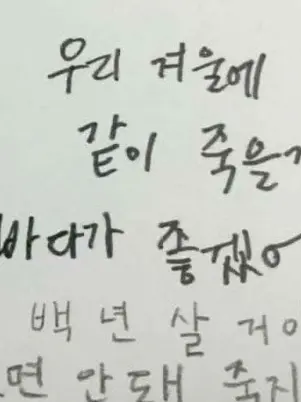 우리 겨울에
같이 죽을
바다가 좋겠어
백 년 살 거
면 안 돼 죽지